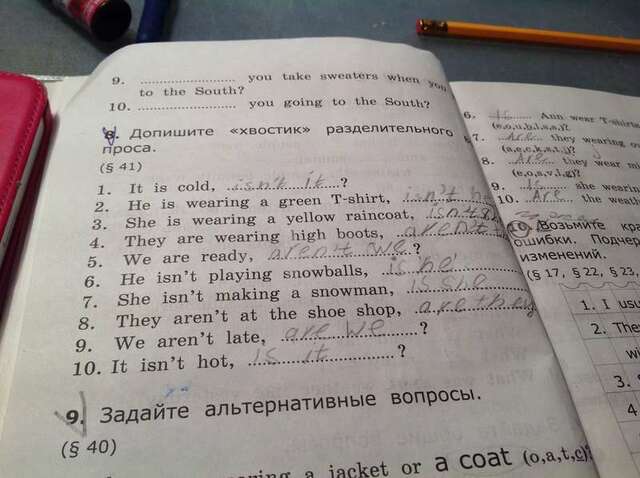 9. ........................ you take sweaters when you
to the South?
10. ........................ you going to the South?
8. Допишите «хвостик» разделительного
проса.
(§ 41)
1. It is cold, isn't it ?
2. He is wearing a green T-shirt, isn't he
3. She is wearing a yellow raincoat, isn't
4. They are wearing high boots, aren't
5. We are ready, aren't we ?
6. He isn't playing snowballs, is he
7. She isn't making a snowman, is she
8. They aren't at the shoe shop, are they
9. We aren't late, are we ?
10. It isn't hot, is it ?
9. Задайте альтернативные вопросы.
(§ 40)
a jacket or a coat (o,a,t,c)?
6. Is Ann wear T-shirts
(e,o,u,b,l,s,a)?
7. Are they wearing
(a,e,c,k,s,t,j)?
8. Are they wear
(e,o,s,v,l,g)?
9. Is she wearing
10. Are the weath
10. Возьмите кра
ошибки. Подчер
изменений.
(§ 17, § 22, § 23,
1. I usu
2. The
wi
3. S
4